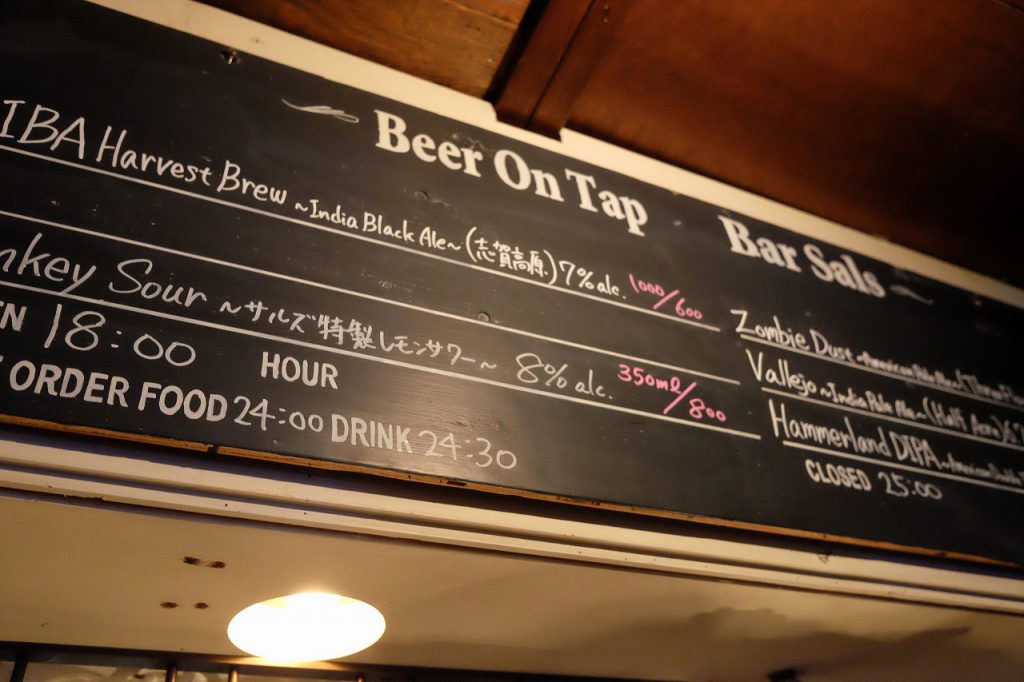 Beer On Tap
IBA Harvest Brew ~India Black Ale~ (志賀高原) 7% alc. 1000/600
nkey Sour ~サルズ特製レモンサワー~ 8% alc. 350ml/800
EN 18:00 HOUR
T ORDER FOOD 24:00 DRINK 24:30
Bar Sals
Zombie Dust ~American Pale Ale~ (Three
Vallejo ~India Pale Ale~ (Half Acre)
Hammerland DIPA ~American Double
CLOSED 25:00